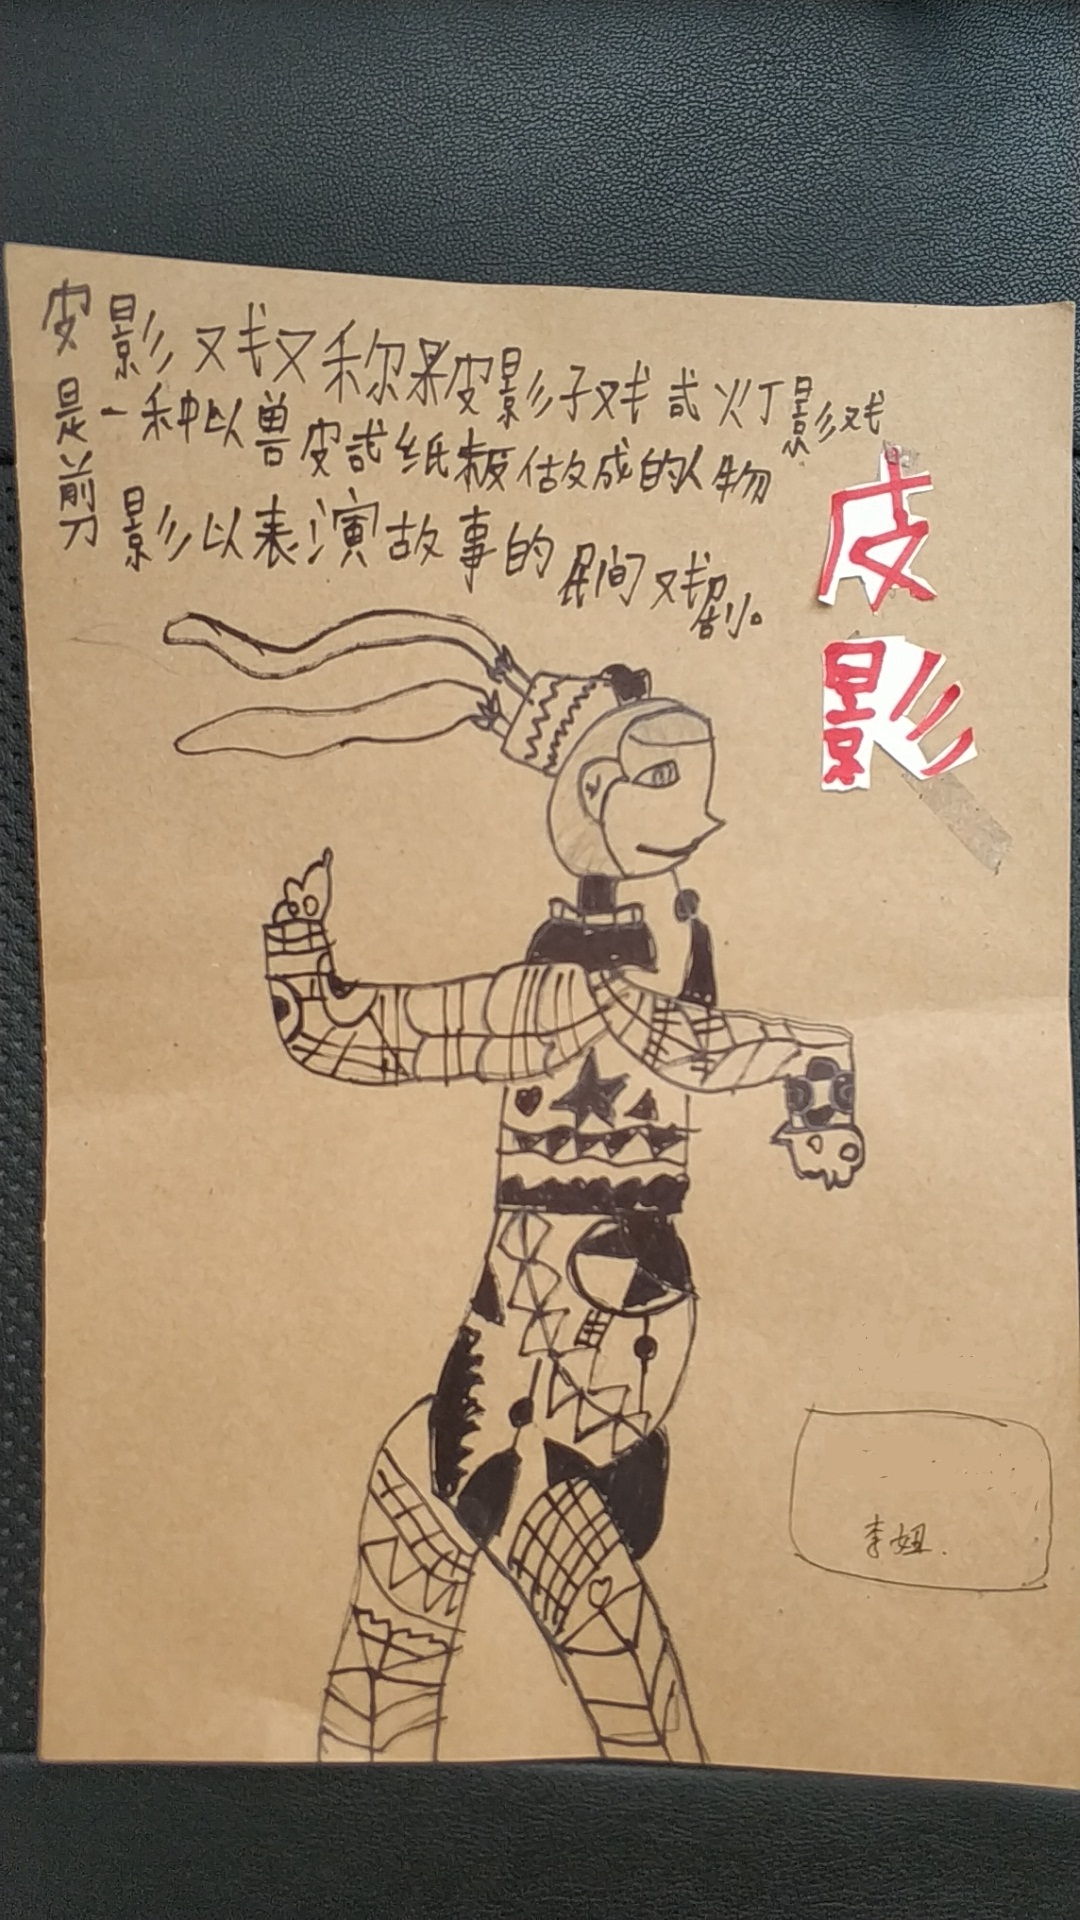 皮影戏又称皮影子戏或灯影戏
是一种以兽皮或纸板做成的人物
剪影以表演故事的民间戏剧。
皮
影
李妞.